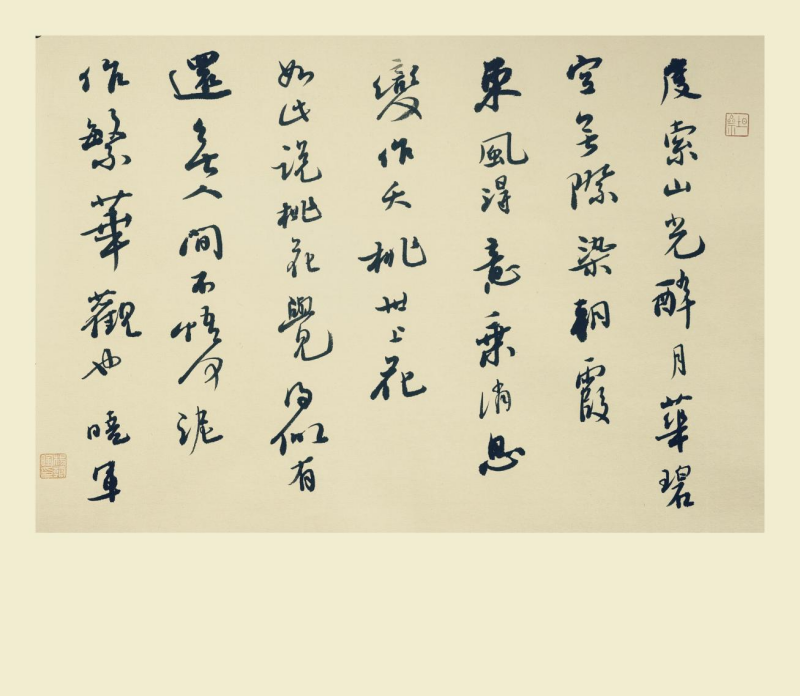 度索山光醉月華碧
空無際染朝霞
東風得意乘消息
變作夭桃世上花
如此說桃花覺得似有
還無人間不悟何況
作繁華觀也 曉軍